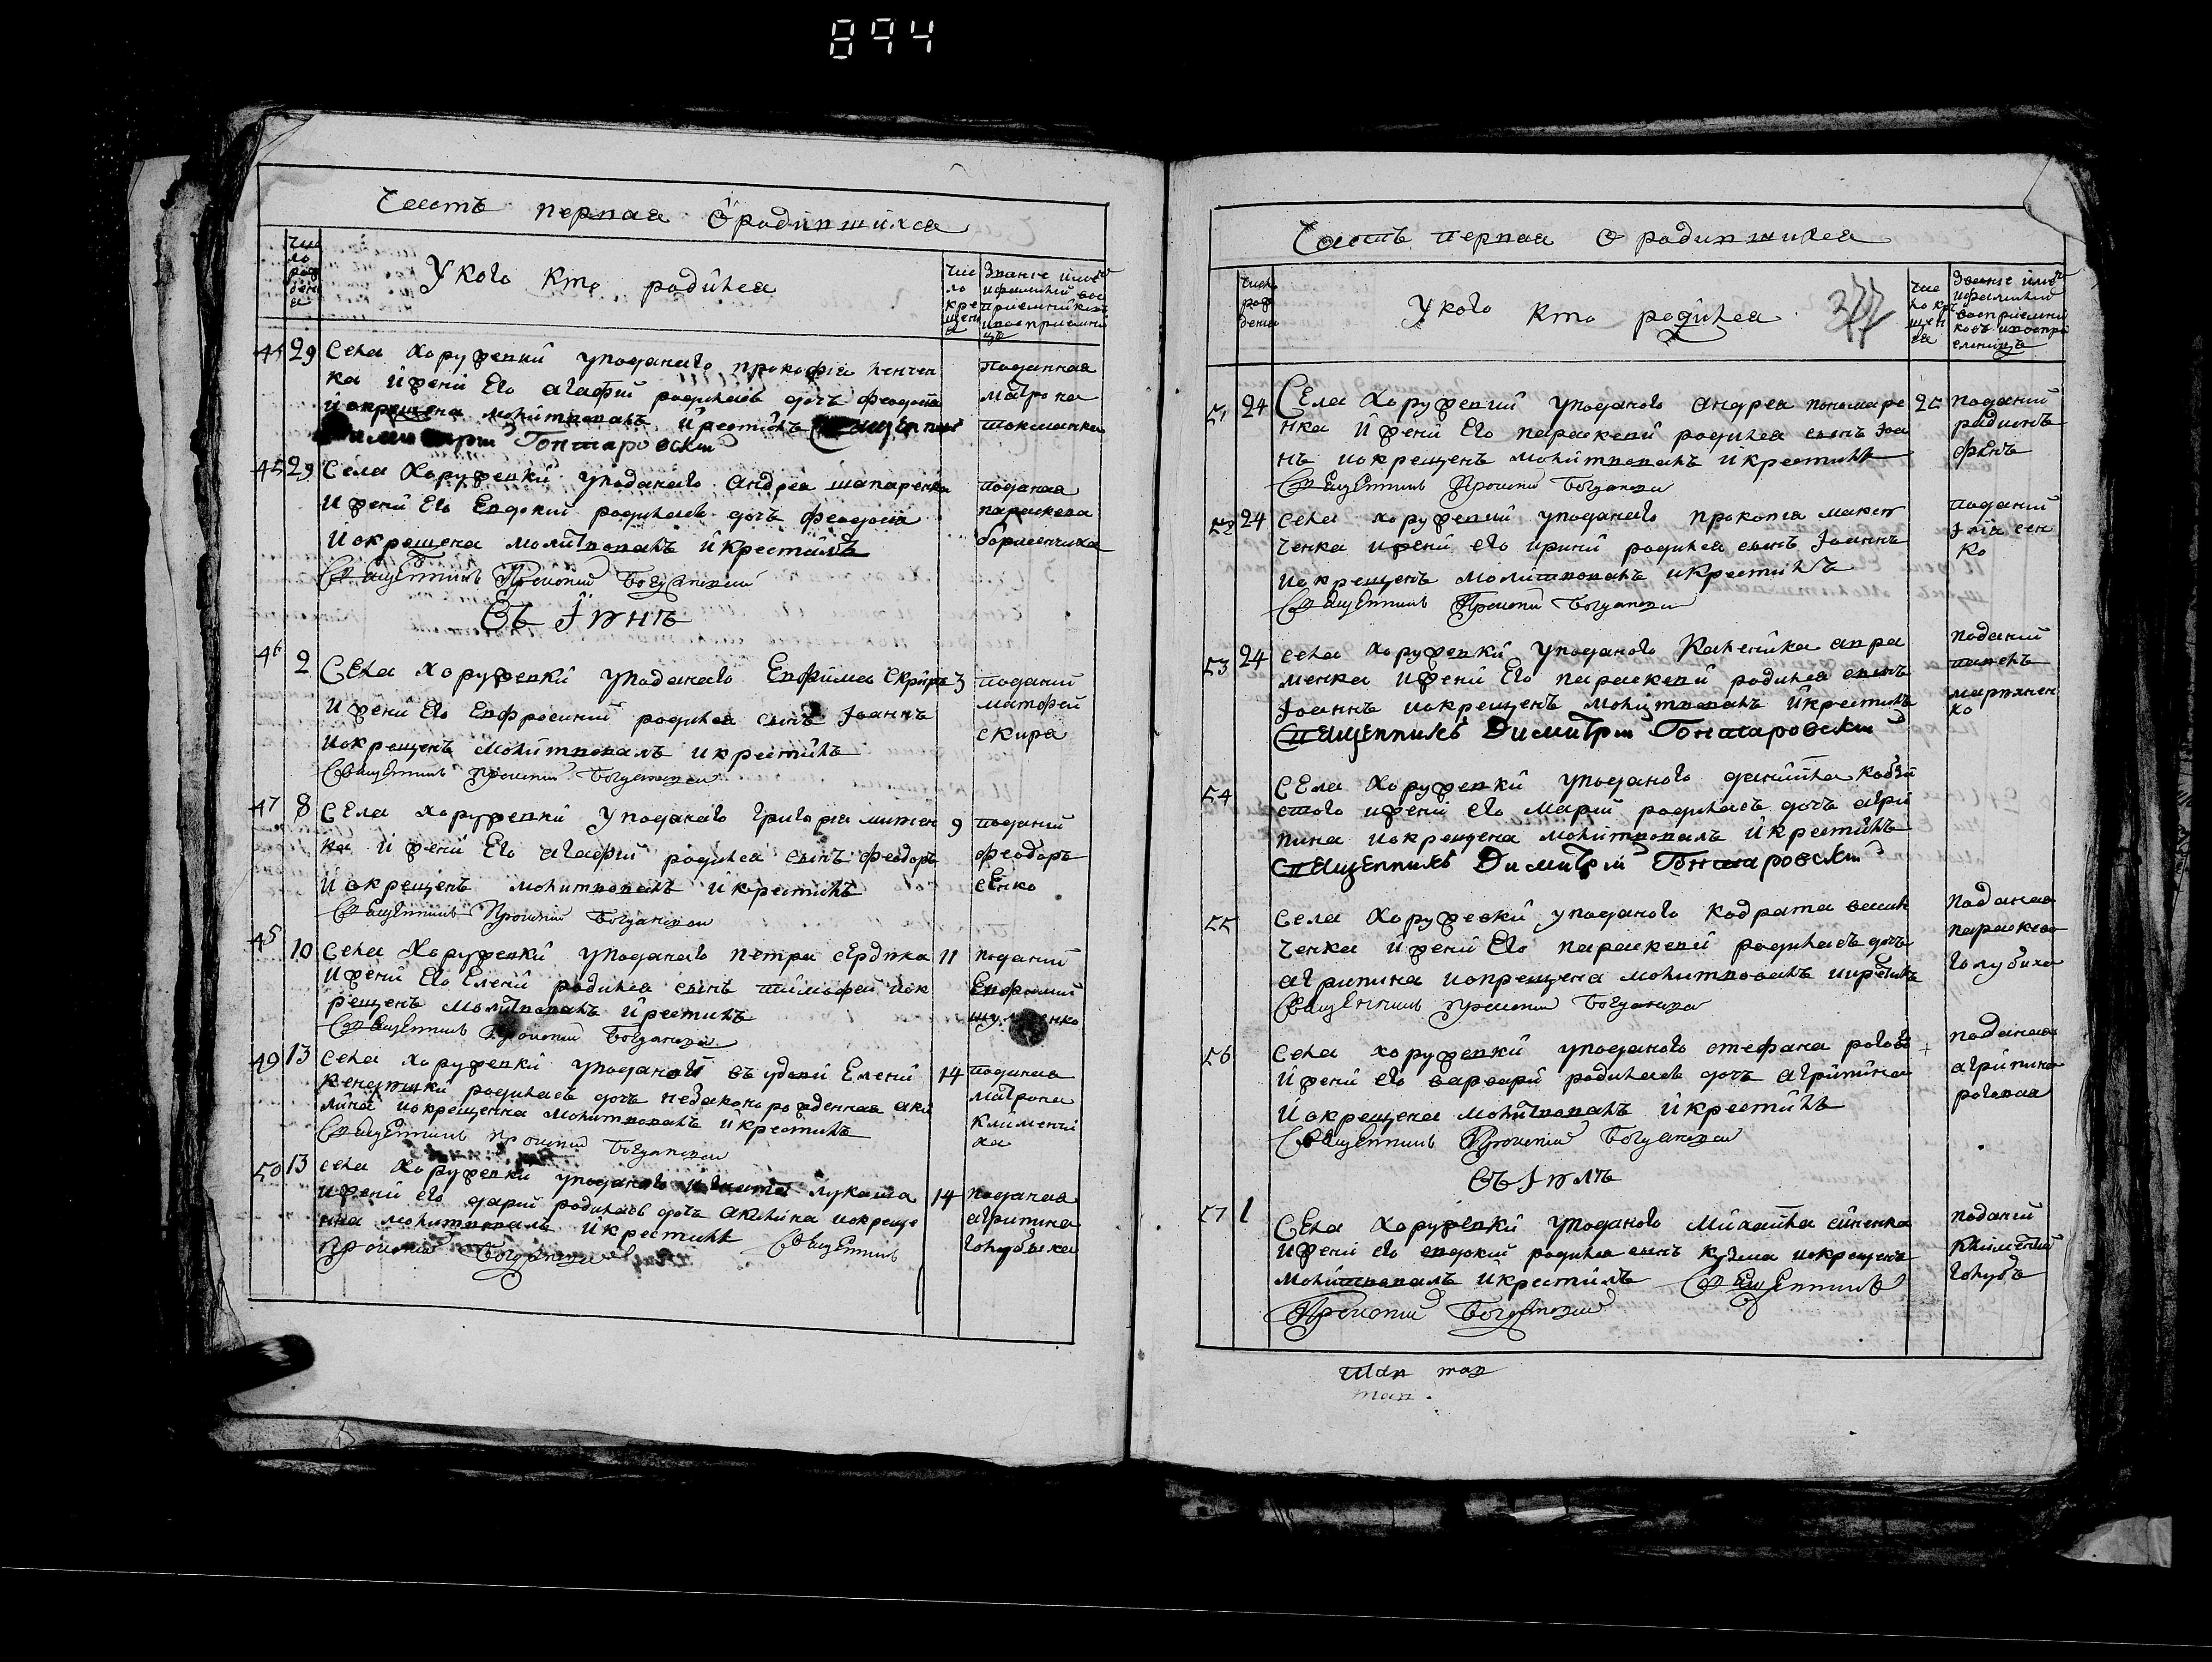 894
Часть первая О родившихся
Число рождения
У кого кто родился
Число крещения
Званіе имя и фамилий восприемников и восприемниц
44 29 Села Хоружевки у поданаго прокофія
ка и жени Его агафіи родилась дочь феодосия
и окрещена молитвовалъ и крестилъ Священникъ
Димитрій Гончаровскій
Поданная
матрона
45 29 Села Хоружевки у поданаго андрея шапаренка
и жени Его Евдокии родилась дочь феодосия
и окрещена молитвовалъ и крестилъ
Священникъ Прокопий Богдановский
поданая
параскева
борисенчиха
Въ Іюнѣ
46 2 Села хоружевки у поданаго Евфима
и жени Его Евфросинии родился сынъ Іоаннъ
и окрещенъ молитвовалъ и крестилъ
Священникъ прокопий Богдановский
3 поданий
матфей
скира
47 8 Села хоружевки у поданаго григория
ка и жени Его агафии родился сынъ феодоръ
и окрещенъ молитвовалъ и крестилъ
Священникъ Прокопий Богдановский
9 поданий
феодоръ
сенко
48 10 Села Хоружевки у поданаго петра сердюка
и жени Его Елени родился сынъ тимофей и ок
рещенъ молитвовалъ и рестилъ
Священникъ Прокопий Богдановский
11 поданий
Евфимий
49 13 Села хоружевки у поданой вдови Елени
родилась дочь незаконорожденная аки
лина и окрещенна молитвовалъ и крестилъ
Священникъ прокопий Богдановский
14 поданая
матрона
клименчи
ха
50 13 села Хоружевки у поданаго игната лукаша
и жени его дарии родилась дочь акилина и окреще
нна молитвовалъ и крестилъ Священникъ
прокопий Богдановский
14 поданая
агрипина
голубовка
Часть первая О родившихся
Число рождения
У кого кто родился
377
Число крещения
Званіе имя и фамилий восприемников и восприемниц
51 24 Села Хоружевки у поданого андрея пономаре
нка и жени Его параскеви родился сынъ Іоа
нъ и окрещенъ молитвовалъ и крестилъ
Священникъ Прокопий Богдановский
25 поданий
родионъ
52 24 села хоружевки у поданаго прокопия
ченка и жени его ирини родился сынъ Іоаннъ
и окрещенъ молитвовалъ и крестилъ
Священникъ Прокопий Богдановский
поданий
53 24 села хоружевки у поданого Каленика авра
менка и жени Его параскеви родился сынъ
Іоаннъ и окрещенъ молитвовалъ и крестилъ
Священникъ Димитрій Гончаровскій
поданий
павелъ
мартинен
ко
54 Села хоружевки у поданого данила
и жени его марии родилась дочь агри
пина и окрещена молитвовалъ и крестилъ
Священникъ Димитрій Гончаровскій
55 Села Хоружевки у поданого кодрата васил
ченка и жени Его параскеви родилась дочь
агрипина и окрещена молитвовалъ и крестилъ
Священникъ прокопий Богдановский
поданая
параскева
голубиха
56 Села хоружевки у поданого стефана рогово
и жени его варвари родилась дочь агрипина
и окрещена молитвовалъ и крестилъ
Священникъ Прокопий Богдановский
поданая
агрипина
роговая
Въ Іюлѣ
57 1 Села хоружевки у поданого Михаила синенка
и жени его евдокии родился сынъ кузма и окрещенъ
молитвовалъ и крестилъ Священникъ
Прокопий Богдановский
поданий
климентий
голубъ